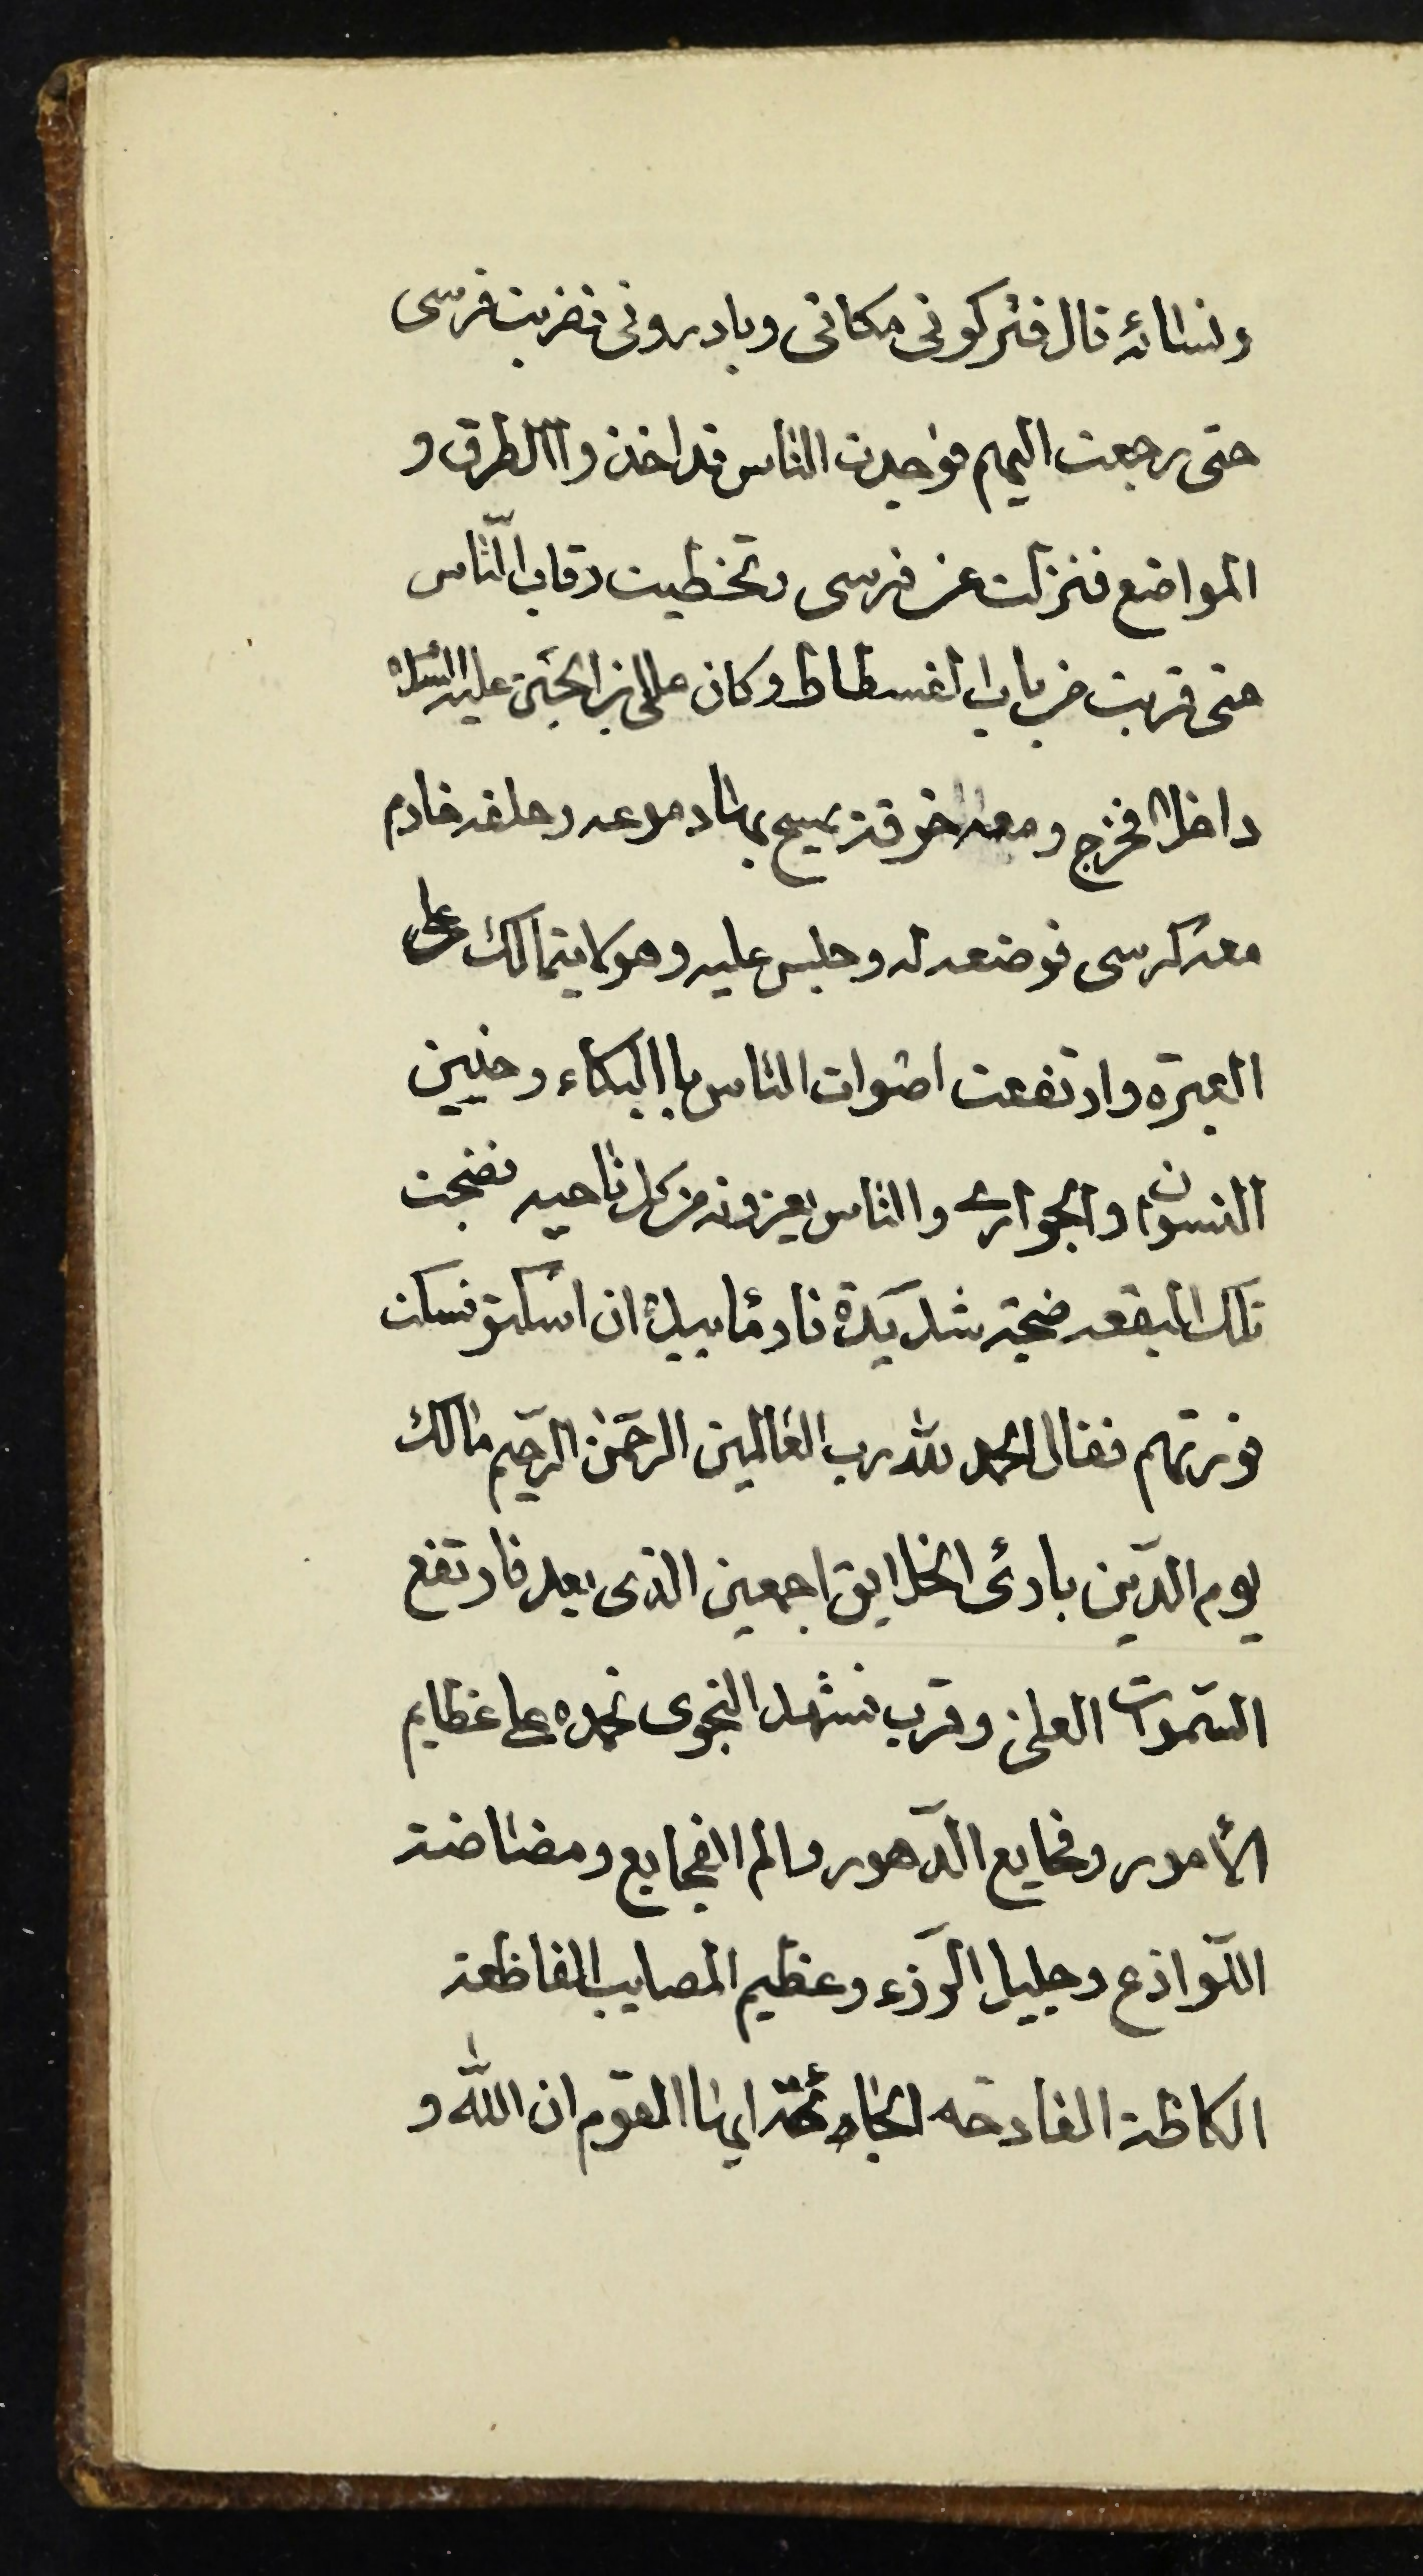 ونسائه قال فتركونى مكانى وبادرونى فضربت فرسى
حتى رجعت اليهم فوجدت الناس قد اخذوا الطرق و
المواضع فنزلت عن فرسى وتخطيت رقاب الناس
حتى قربت من باب الفسطاط وكان على بن الحسين عليه السلام
داخلا فخرج ومعه خرقة يمسح بها دموعه وخلفه خادم
معه كرسى فوضعه له وجلس عليه وهو لا يتمالك على
العبرة وارتفعت اصوات الناس باالبكاء وحنين
النسوان والجوارى والناس يعزونه من كل ناحيه فضجت
تلك البقعه ضجة شديدة فاومأ بيده ان اسكتو فسكنت
فورتهم فقال الحمد لله رب العالمين الرحمن الرحيم مالك
يوم الدين بارئ الخلايق اجمعين الذى بعد فارتفع
السموات العلى وقرب فشهد النجوى نحمده على عظايم
الأمور وفجايع الدهور والم الفجايع ومضاضة
اللواذع وجليل الرزء وعظيم المصايب الفاظعة
الكاظة الفادحه الجائحة ايها القوم ان الله و